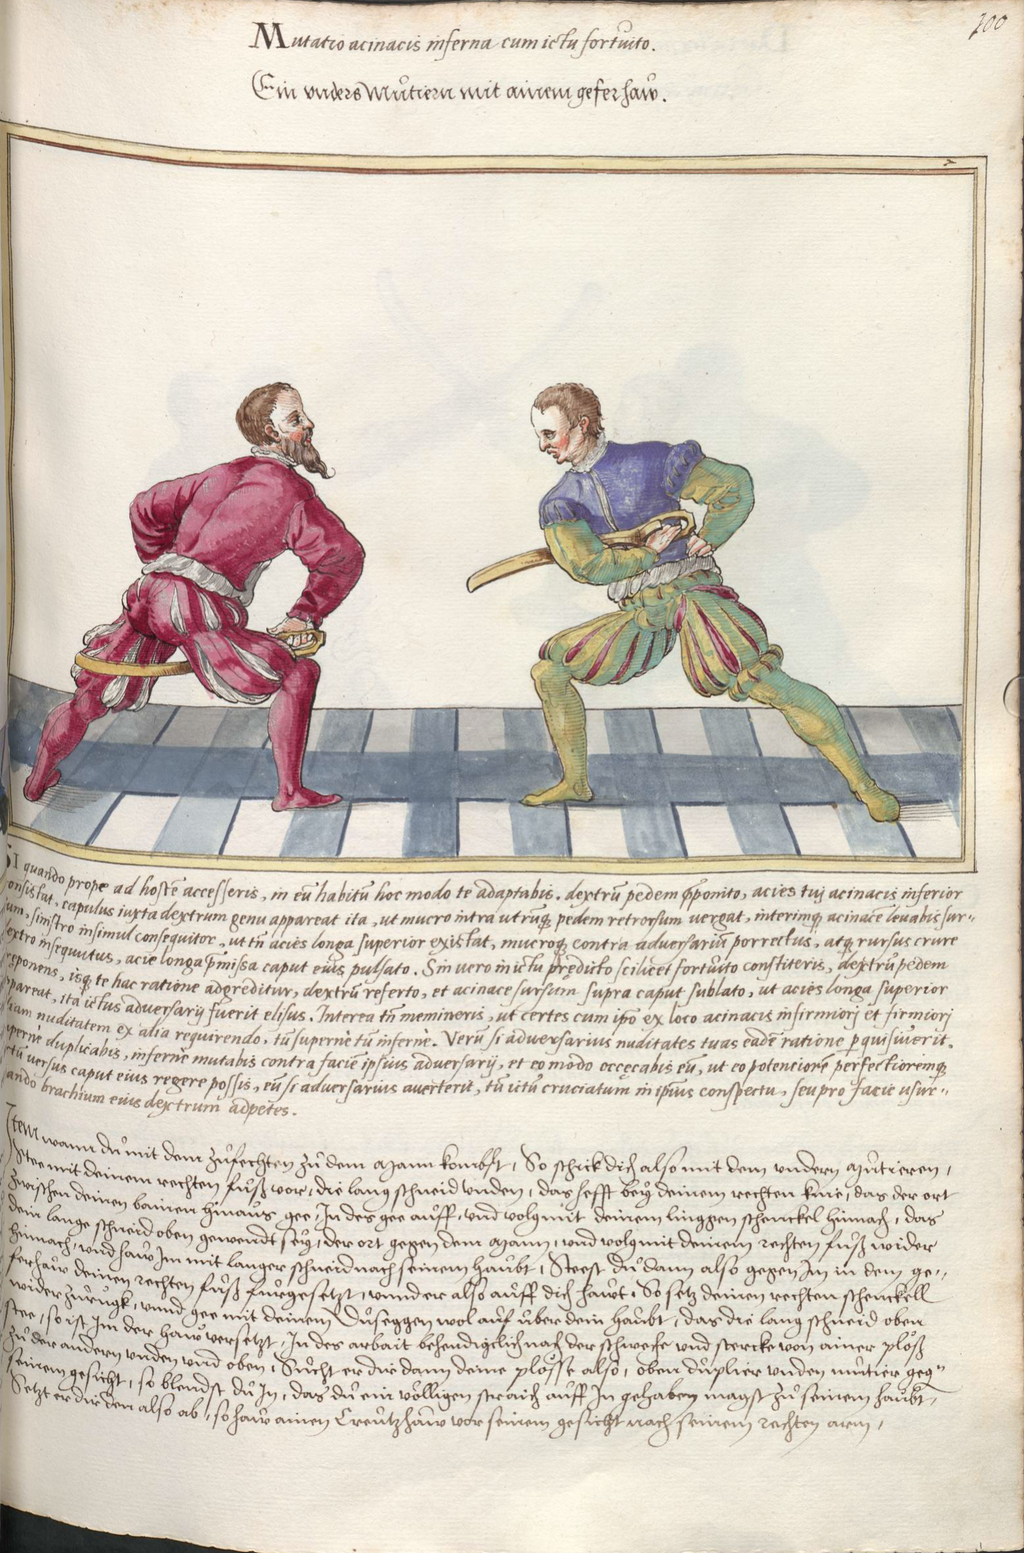 200
Mutatio acinacis inferna cum ictu fortuito.
Ein unders Mutiern mit ainem gefer haw.
SI quando prope ad hostē accesseris, in eū habitū hoc modo te adaptabis. dextrū pedem p̄ponito, acies tui acinacis inferior
consistat, capulus iuxta dextrum genu appareat ita, ut mucro intra utrūq; pedem retrorsum vergat, interimq; acinacē levabis sur-
sum, sinistro insimul consequitor, ut tn̄ acies longa superior existat, mucroq; contra adversariū porrectus, atq; rursus crure
dextro insequutus, acie longa p̄missa caput eius pulsato. Sin vero in ictu prędicto scilicet fortuito constiteris, dextrū pedem
preponens, isq; te hac ratione adgreditur, dextrū referto, et acinace sursum supra caput sublato, ut acies longa superior
appareat, ita ictus adversarij fuerit elisus. Interea tn̄ memineris, ut certes cum ip̄o ex loco acinacis infirmiorj et firmiorj
etiam nuditatem ex alia requirendo, tū superne tū inferne. Verū si adversarius nuditates tuas eadē ratione p̄quisiuerit.
superne duplicabis, inferne mutabis contra faciē ipsius adversarij, et eo modo occęcabis eū, ut eo potencionē perfectioremq;
ictū versus caput eius regere possis, eū si adversarius averterit, tū ictū cruciatum in ipsius conspectu, seu pro facie usur-
pando brachium eius dextrum adpetes.
Item wann du mit dem zufechten zu dem Mann kombst, So schick dich also mit dem undern Mutieren,
Stee mit deinem rechten fuß vor, die lang schneid unden, das hefft bey deinem rechten knie, das der ort
zwischen deinen bainen hinaus gee, In des gee auff, und volg mit deinem linggen schenckel hinnach, das
dein lange schneid oben gewendt sey, der ort gegen dem Mann, und volg mit deinem rechten fuß wider
hinnach, und haw Im mit langer schneid nach seinem haubt, Steest du dann also gegen Im in dem ge-
ferhaw deinen rechten fuß furgesetzt, unnd er also auff dich hawt, So setz deinen rechten schenckell
wider zurugk, unnd gee mit deinem Duseggen wol auf uber dein haubt, das die lang schneid oben
stee, so ist Im der haw versetzt, In des arbait behendigclich nach der schwech und sterck von ainer ploß
zu der andern unden und oben, Sucht er dir dann deine plösse also, oben duplier unden mutier geg
seinem gesicht, so blendst du In, das du ein völligen straich auff In gehaben magst zu seinem haubt,
Setzt er dir den also ab, so haw ainen Creutzhaw vor seinem gesicht nach seinem rechten arm,